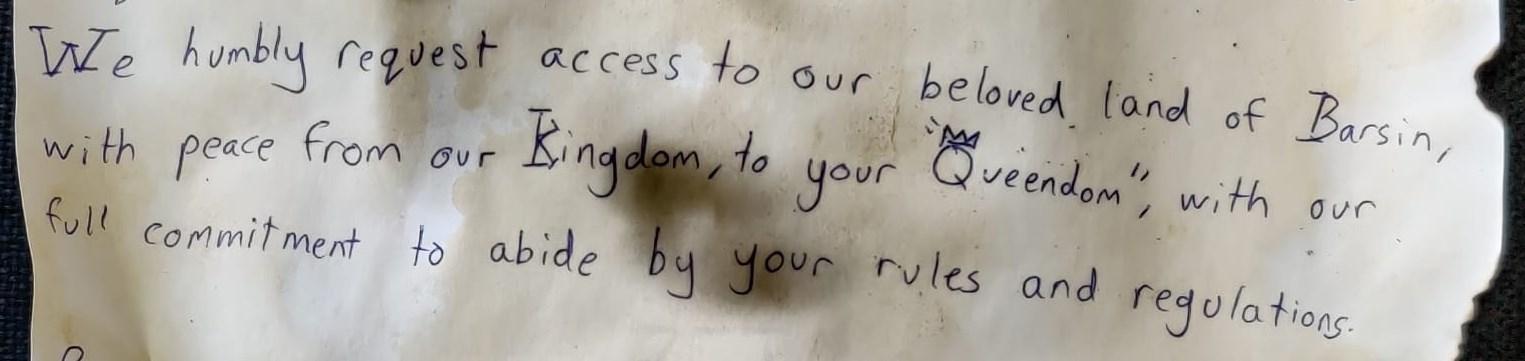 We humbly request access to our beloved land of Barsin,
with peace from our Kingdom, to your "Queendom", with our
full commitment to abide by your rules and regulations.